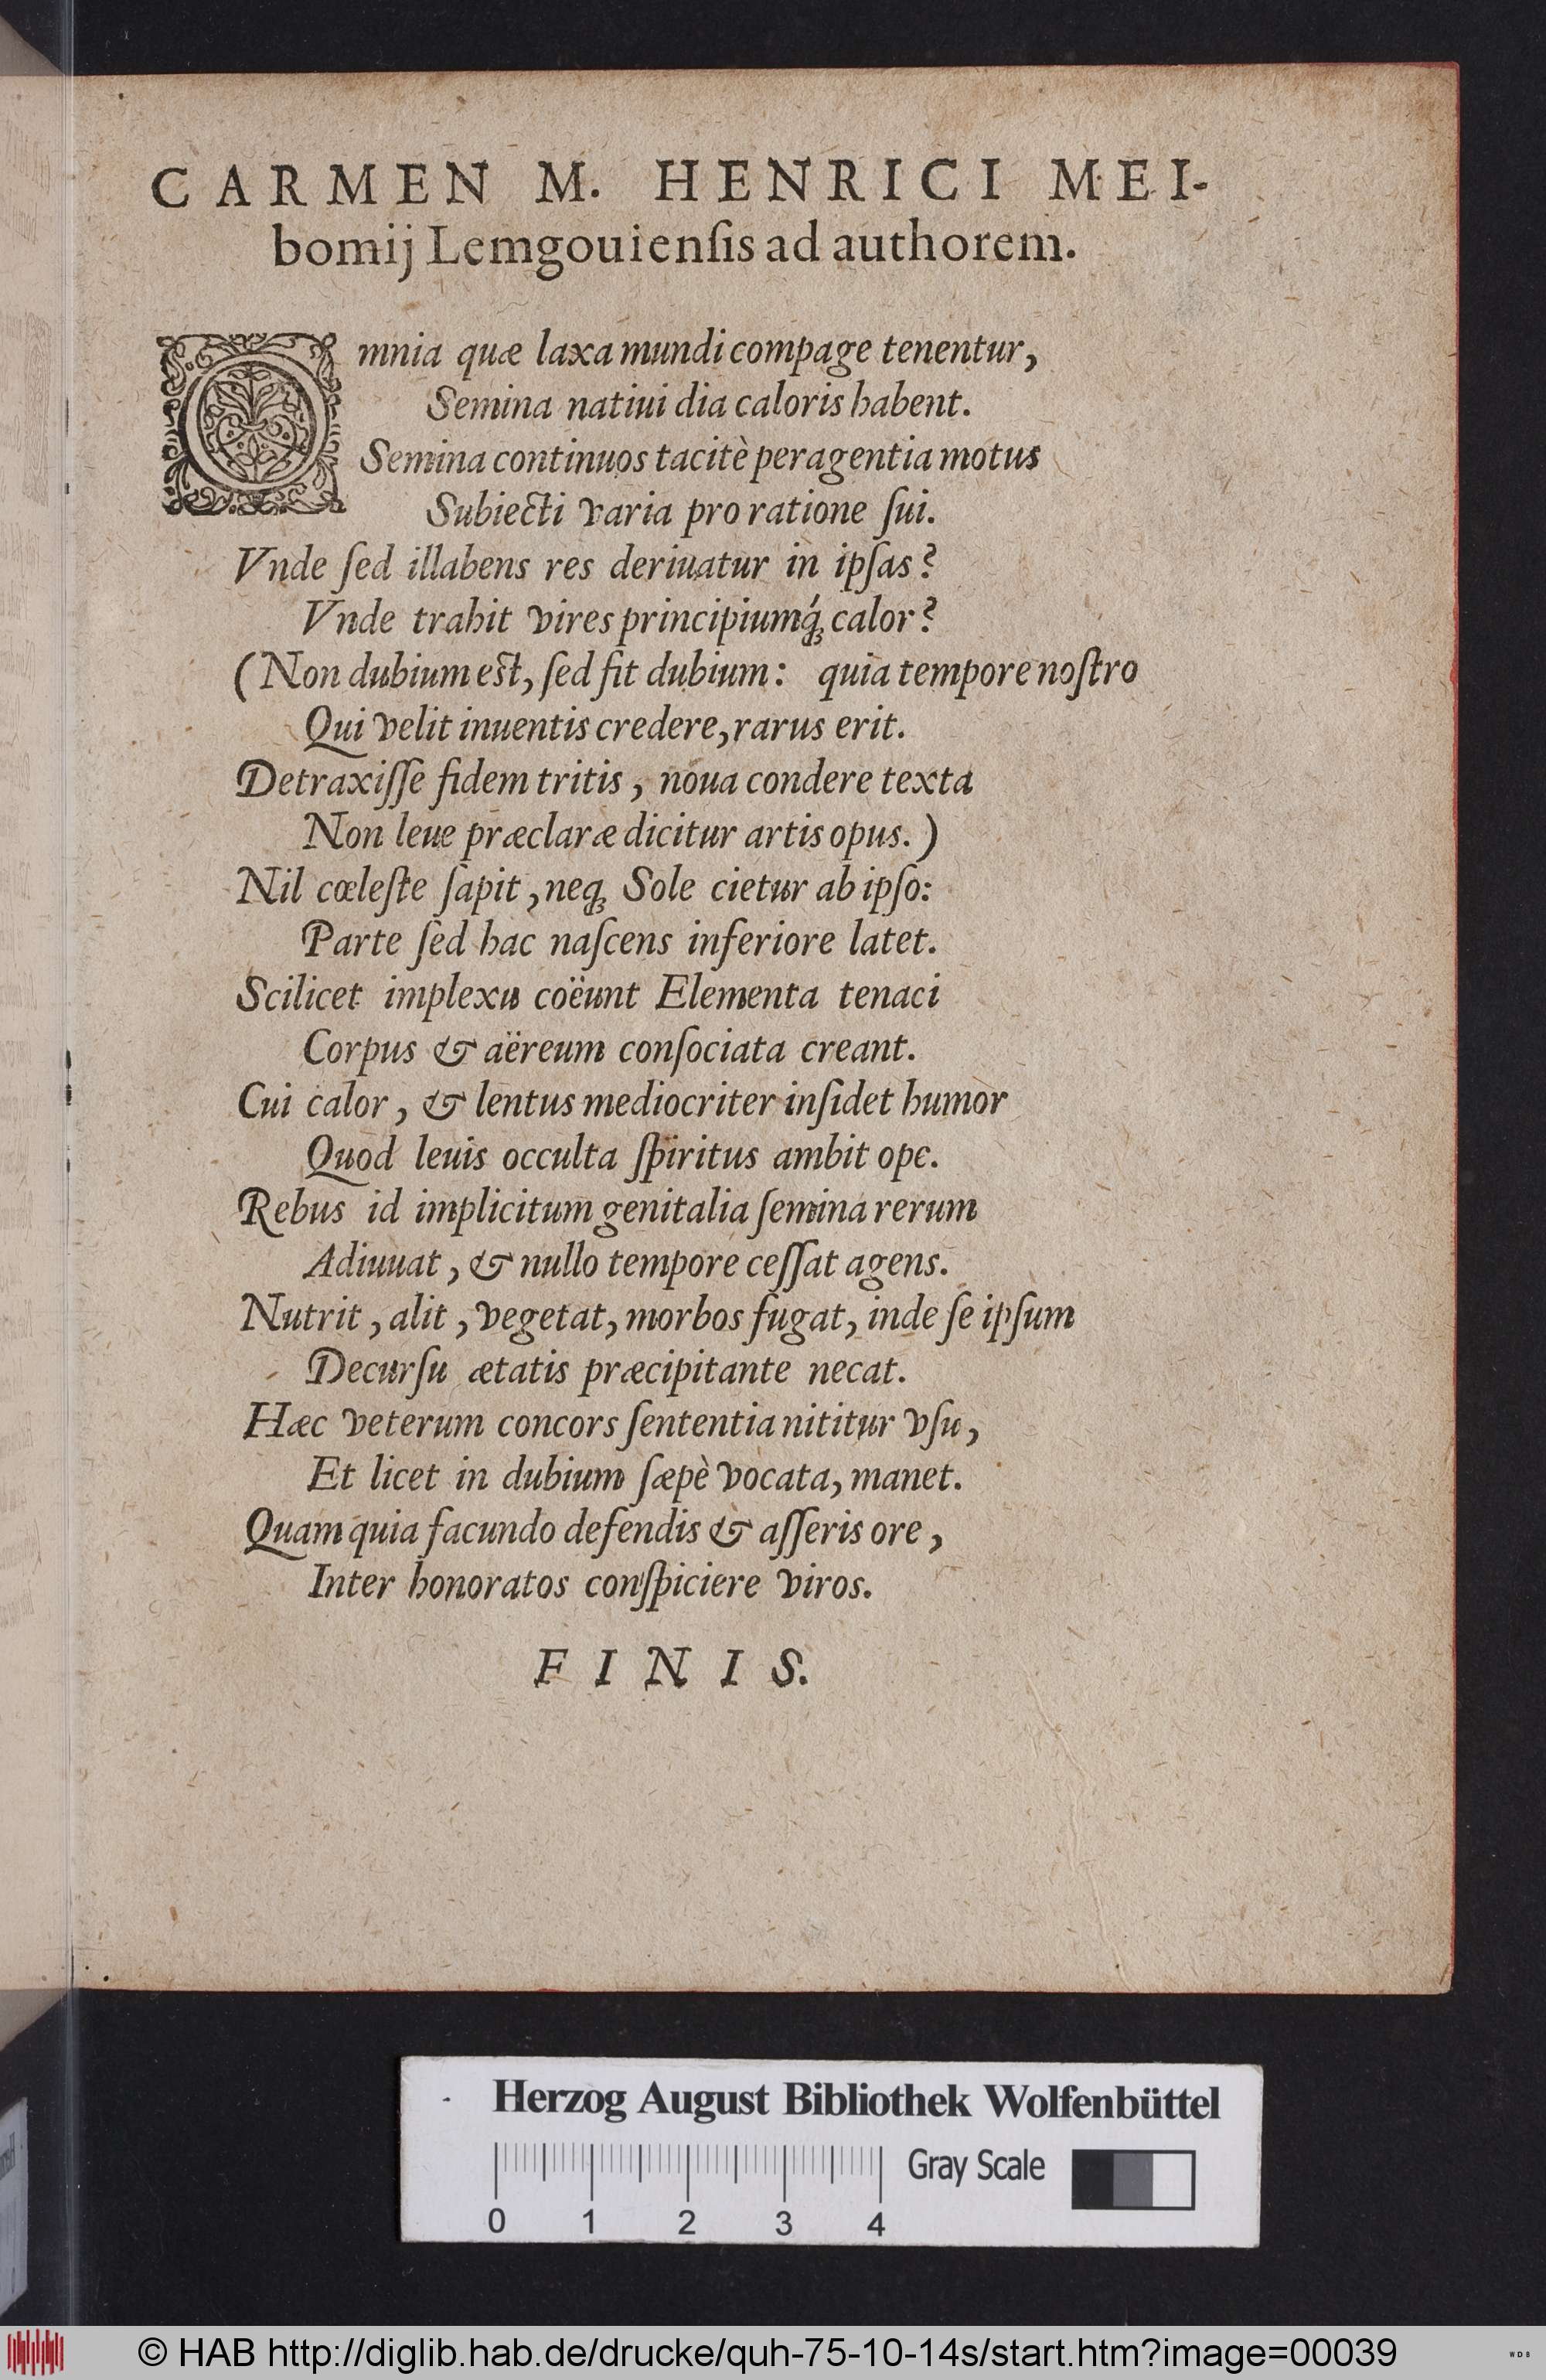 CARMEN M. HENRICI MEI-
bomij Lemgouienſis ad authorem.
Omnia quæ laxa mundi compage tenentur,
Semina natiui dia caloris habent.
Semina continuos tacitè peragentia motus
Subiecti varia pro ratione ſui.
Vnde ſed illabens res deriuatur in ipſas?
Vnde trahit vires principiumq́ꝫ calor?
(Non dubium est, ſed fit dubium: quia tempore noſtro
Qui velit inuentis credere, rarus erit.
Detraxiſſe fidem tritis, noua condere texta
Non leue præclaræ dicitur artis opus.)
Nil cœleſte ſapit, neqꝫ Sole cietur ab ipſo:
Parte ſed hac naſcens inferiore latet.
Scilicet implexu coëunt Elementa tenaci
Corpus & aëreum conſociata creant.
Cui calor, & lentus mediocriter inſidet humor
Quod leuis occulta ſpiritus ambit ope.
Rebus id implicitum genitalia ſemina rerum
Adiuuat, & nullo tempore ceſſat agens.
Nutrit, alit, vegetat, morbos fugat, inde ſe ipſum
Decurſu ætatis præcipitante necat.
Hæc veterum concors ſententia nititur vſu,
Et licet in dubium ſæpè vocata, manet.
Quam quia facundo defendis & aſſeris ore,
Inter honoratos conſpiciere viros.
FINIS.
Herzog August Bibliothek Wolfenbüttel
Gray Scale
0 1 2 3 4
© HAB http://diglib.hab.de/drucke/quh-75-10-14s/start.htm?image=00039
WDB